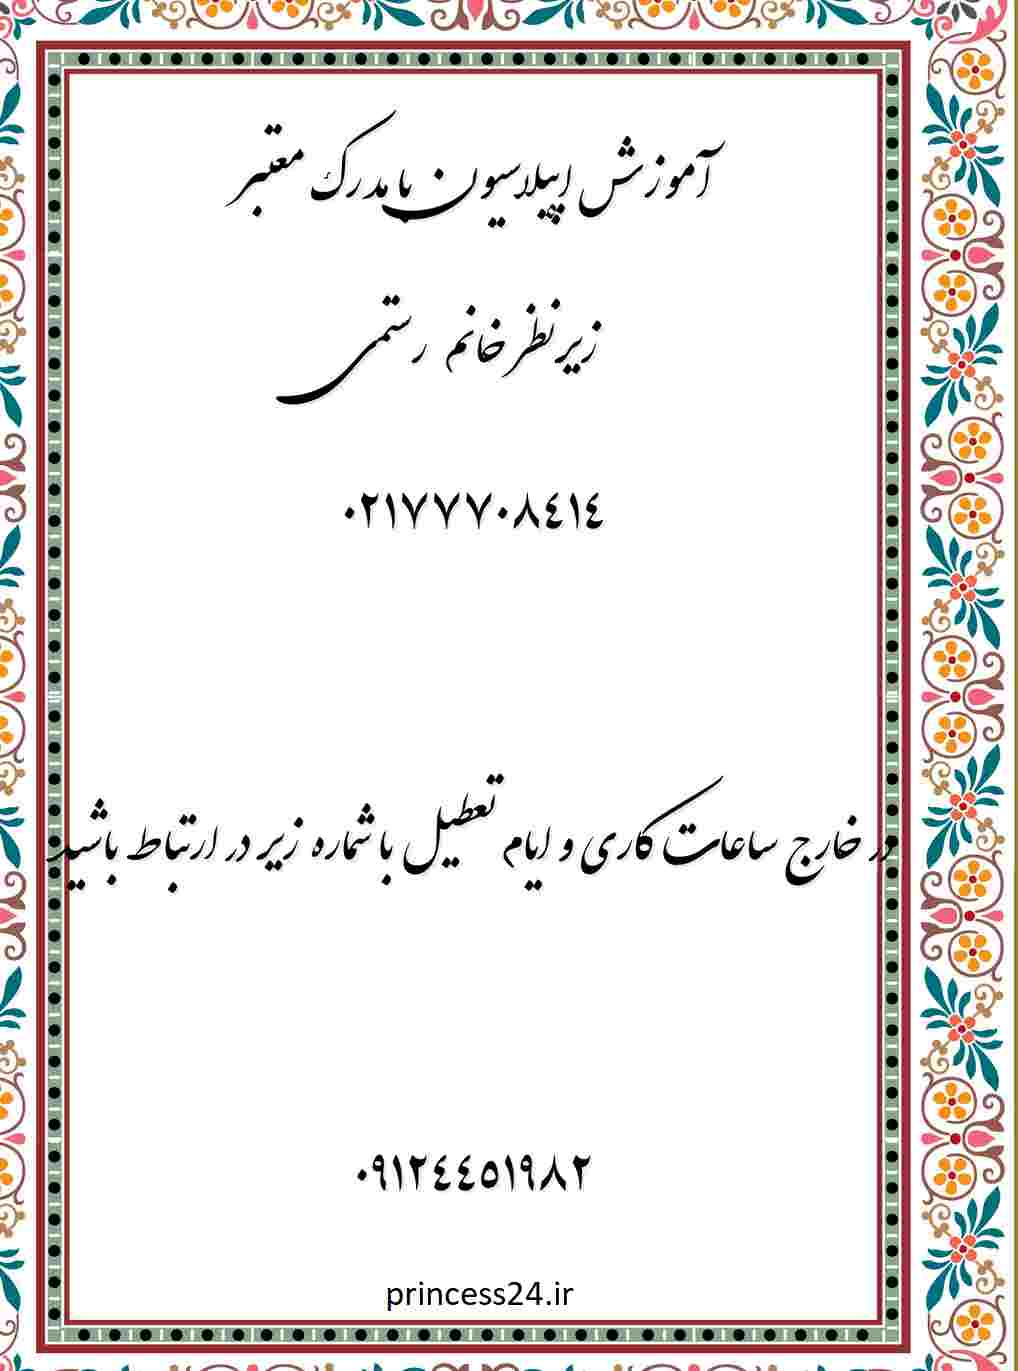 آموزش اپیلاسیون با مدرک معتبر
زیر نظر خانم رستمی
۰۲۱۷۷۷۰۸٤۱٤
در خارج ساعات کاری و ایام تعطیل با شماره زیر در ارتباط باشید
۰۹۱۲٤٤۵۱۹۸۲
princess24.ir